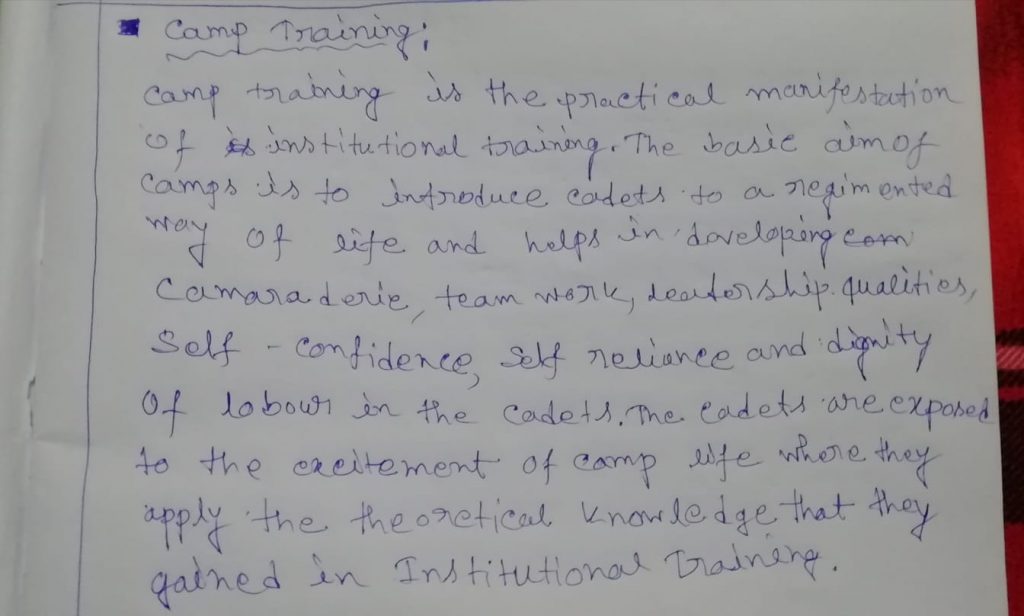 ▪ Camp Training:
Camp training is the practical manifestation
of institutional training. The basic aim of
Camps is to introduce cadets to a regimented
way of life and helps in developing com
Camaraderie, team work, leadership qualities,
Self - confidence, self reliance and dignity
Of labour in the cadets. The cadets are exposed
to the excitement of camp life where they
apply the theoretical knowledge that they
gained in Institutional Training.